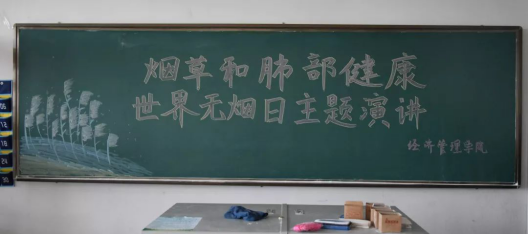 烟草和肺部健康
世界无烟日主题演讲
经济管理学院